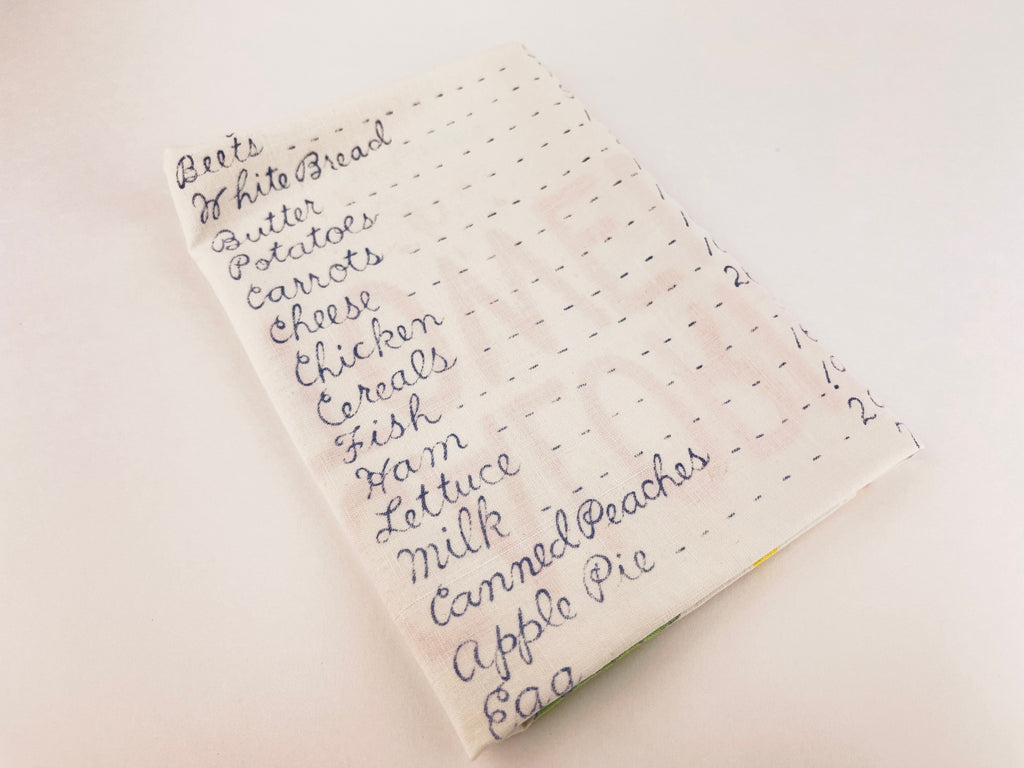 Beets
White Bread
Butter
Potatoes
Carrots
Cheese
Chicken
Cereals
Fish
Ham
Lettuce
Milk
Canned Peaches
Apple Pie
Egg